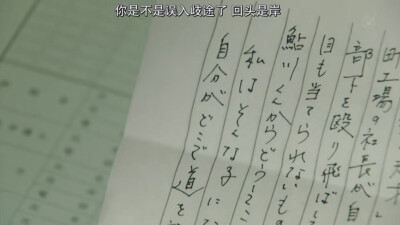 你是不是误入歧途了 回头是岸
町工場の社長が自
部下を殴り飛ばし
目も当てられないもの
鮎川くんからどうして
私はそんな子に
自分がどこで道を